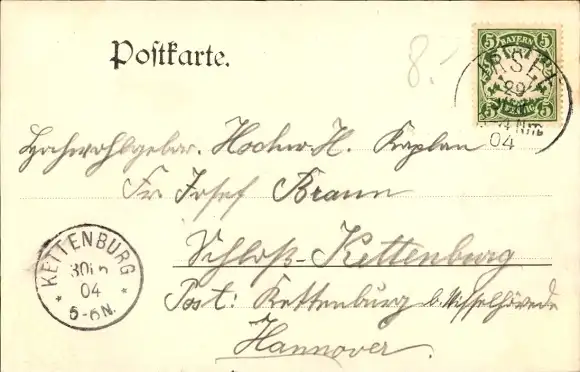 Postkarte.
8.-
5 BAYERN 5
29
Nm
04
Hochwohlgebor. Hochw. H. Kaplan
Fr. Josef Braun
Schloß-Kettenburg
Post: Kettenburg b. Visselhövede
Hannover.
KETTENBURG
04
5-6N.